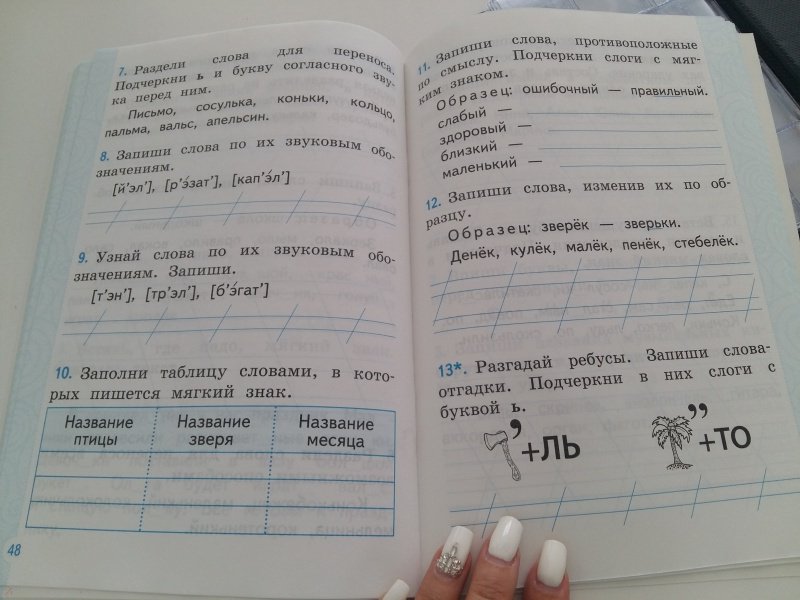 7. Раздели слова для переноса.
Подчеркни ь и букву согласного зву-
ка перед ним.
Письмо, сосулька, коньки, кольцо,
пальма, вальс, апельсин.
8. Запиши слова по их звуковым обо-
значениям.
[й'эл'], [р'э́зат'], [кап'э́л']
9. Узнай слова по их звуковым обо-
значениям. Запиши.
[т'эн'], [тр'эл'], [б'э́гат']
10. Заполни таблицу словами, в кото-
рых пишется мягкий знак.
Название птицы
Название зверя
Название месяца
48
11. Запиши слова, противоположные
по смыслу. Подчеркни слоги с мяг-
ким знаком.
Образец: ошибочный — правильный.
слабый —
здоровый —
близкий —
маленький —
12. Запиши слова, изменив их по об-
разцу.
Образец: зверёк — зверьки.
Денёк, кулёк, малёк, пенёк, стебелёк.
13*. Разгадай ребусы. Запиши слова-
отгадки. Подчеркни в них слоги с
буквой ь.
’+ЛЬ
’’+ТО